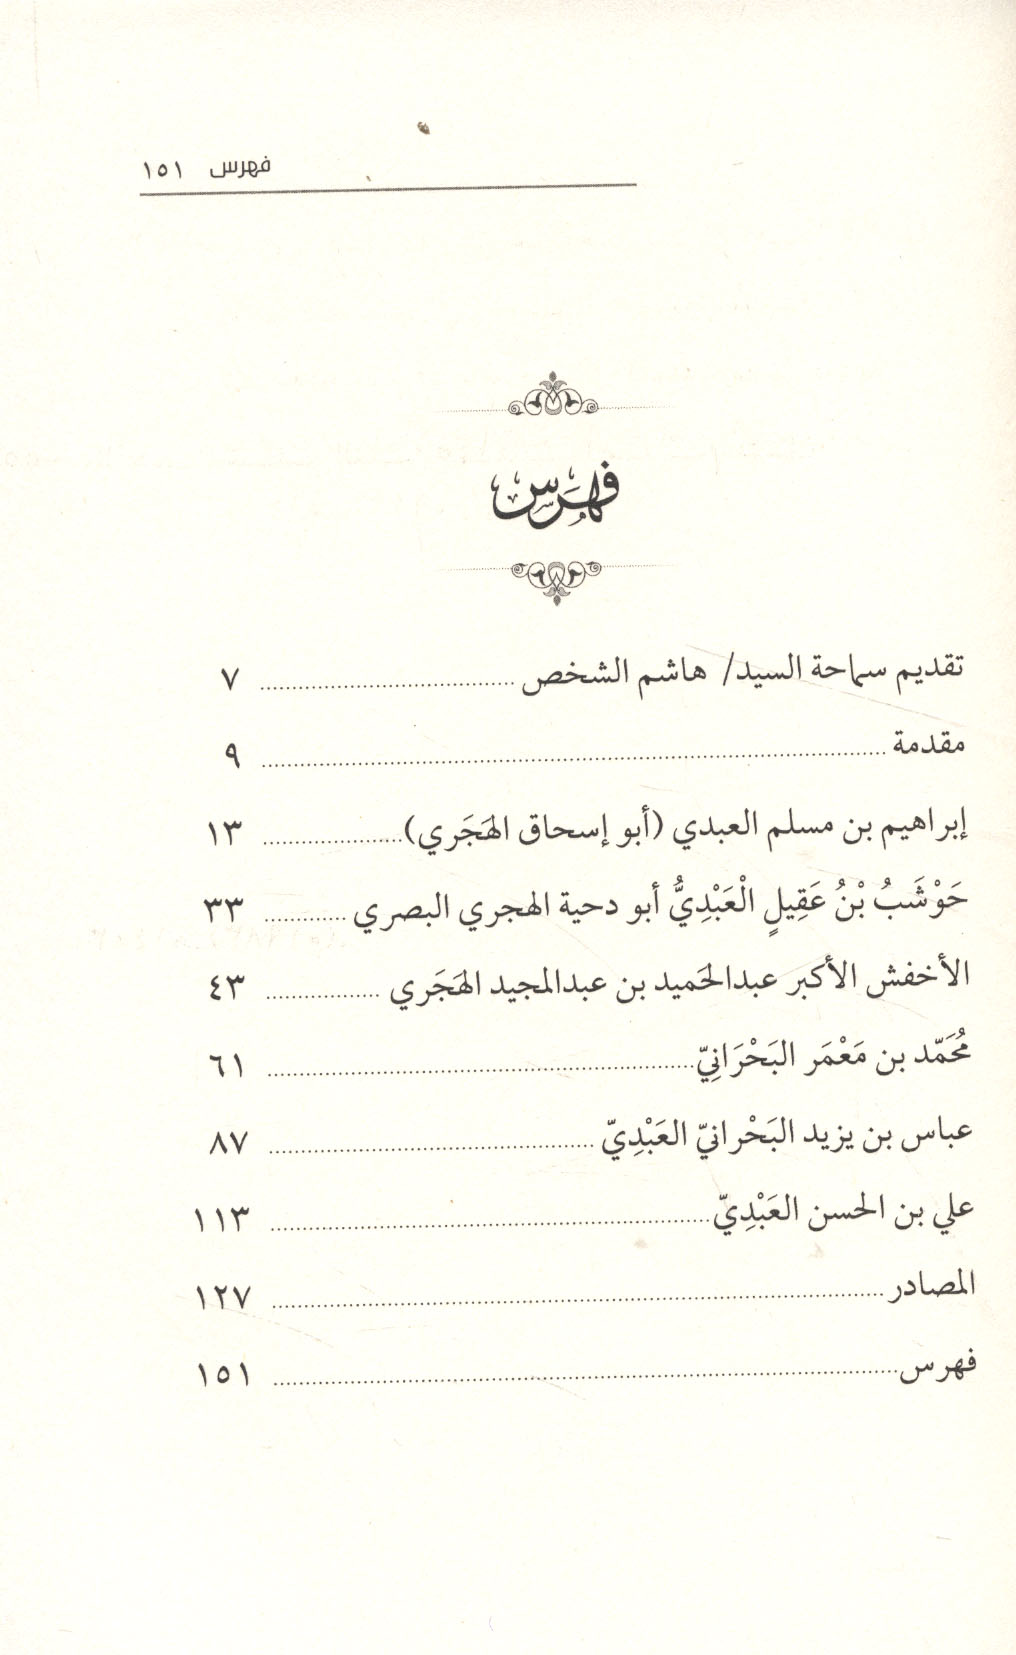 فهرس ١٥١
فهرس
تقديم سماحة السيد/ هاشم الشخص ٧
مقدمة ٩
إبراهيم بن مسلم العبدي (أبو إسحاق الهَجَري) ١٣
حَوْشَبُ بْنُ عَقِيلٍ الْعَبْدِيُّ أبو دحية الهجري البصري ٣٣
الأخفش الأكبر عبدالحَميد بن عبدالمجيد الهَجَري ٤٣
مُحَمَّد بن مَعْمَر البَحْرَانِيّ ٦١
عباس بن يزيد البَحْرانيّ العَبْدِيّ ٨٧
علي بن الحسن العَبْدِيّ ١١٣
المصادر ١٢٧
فهرس ١٥١